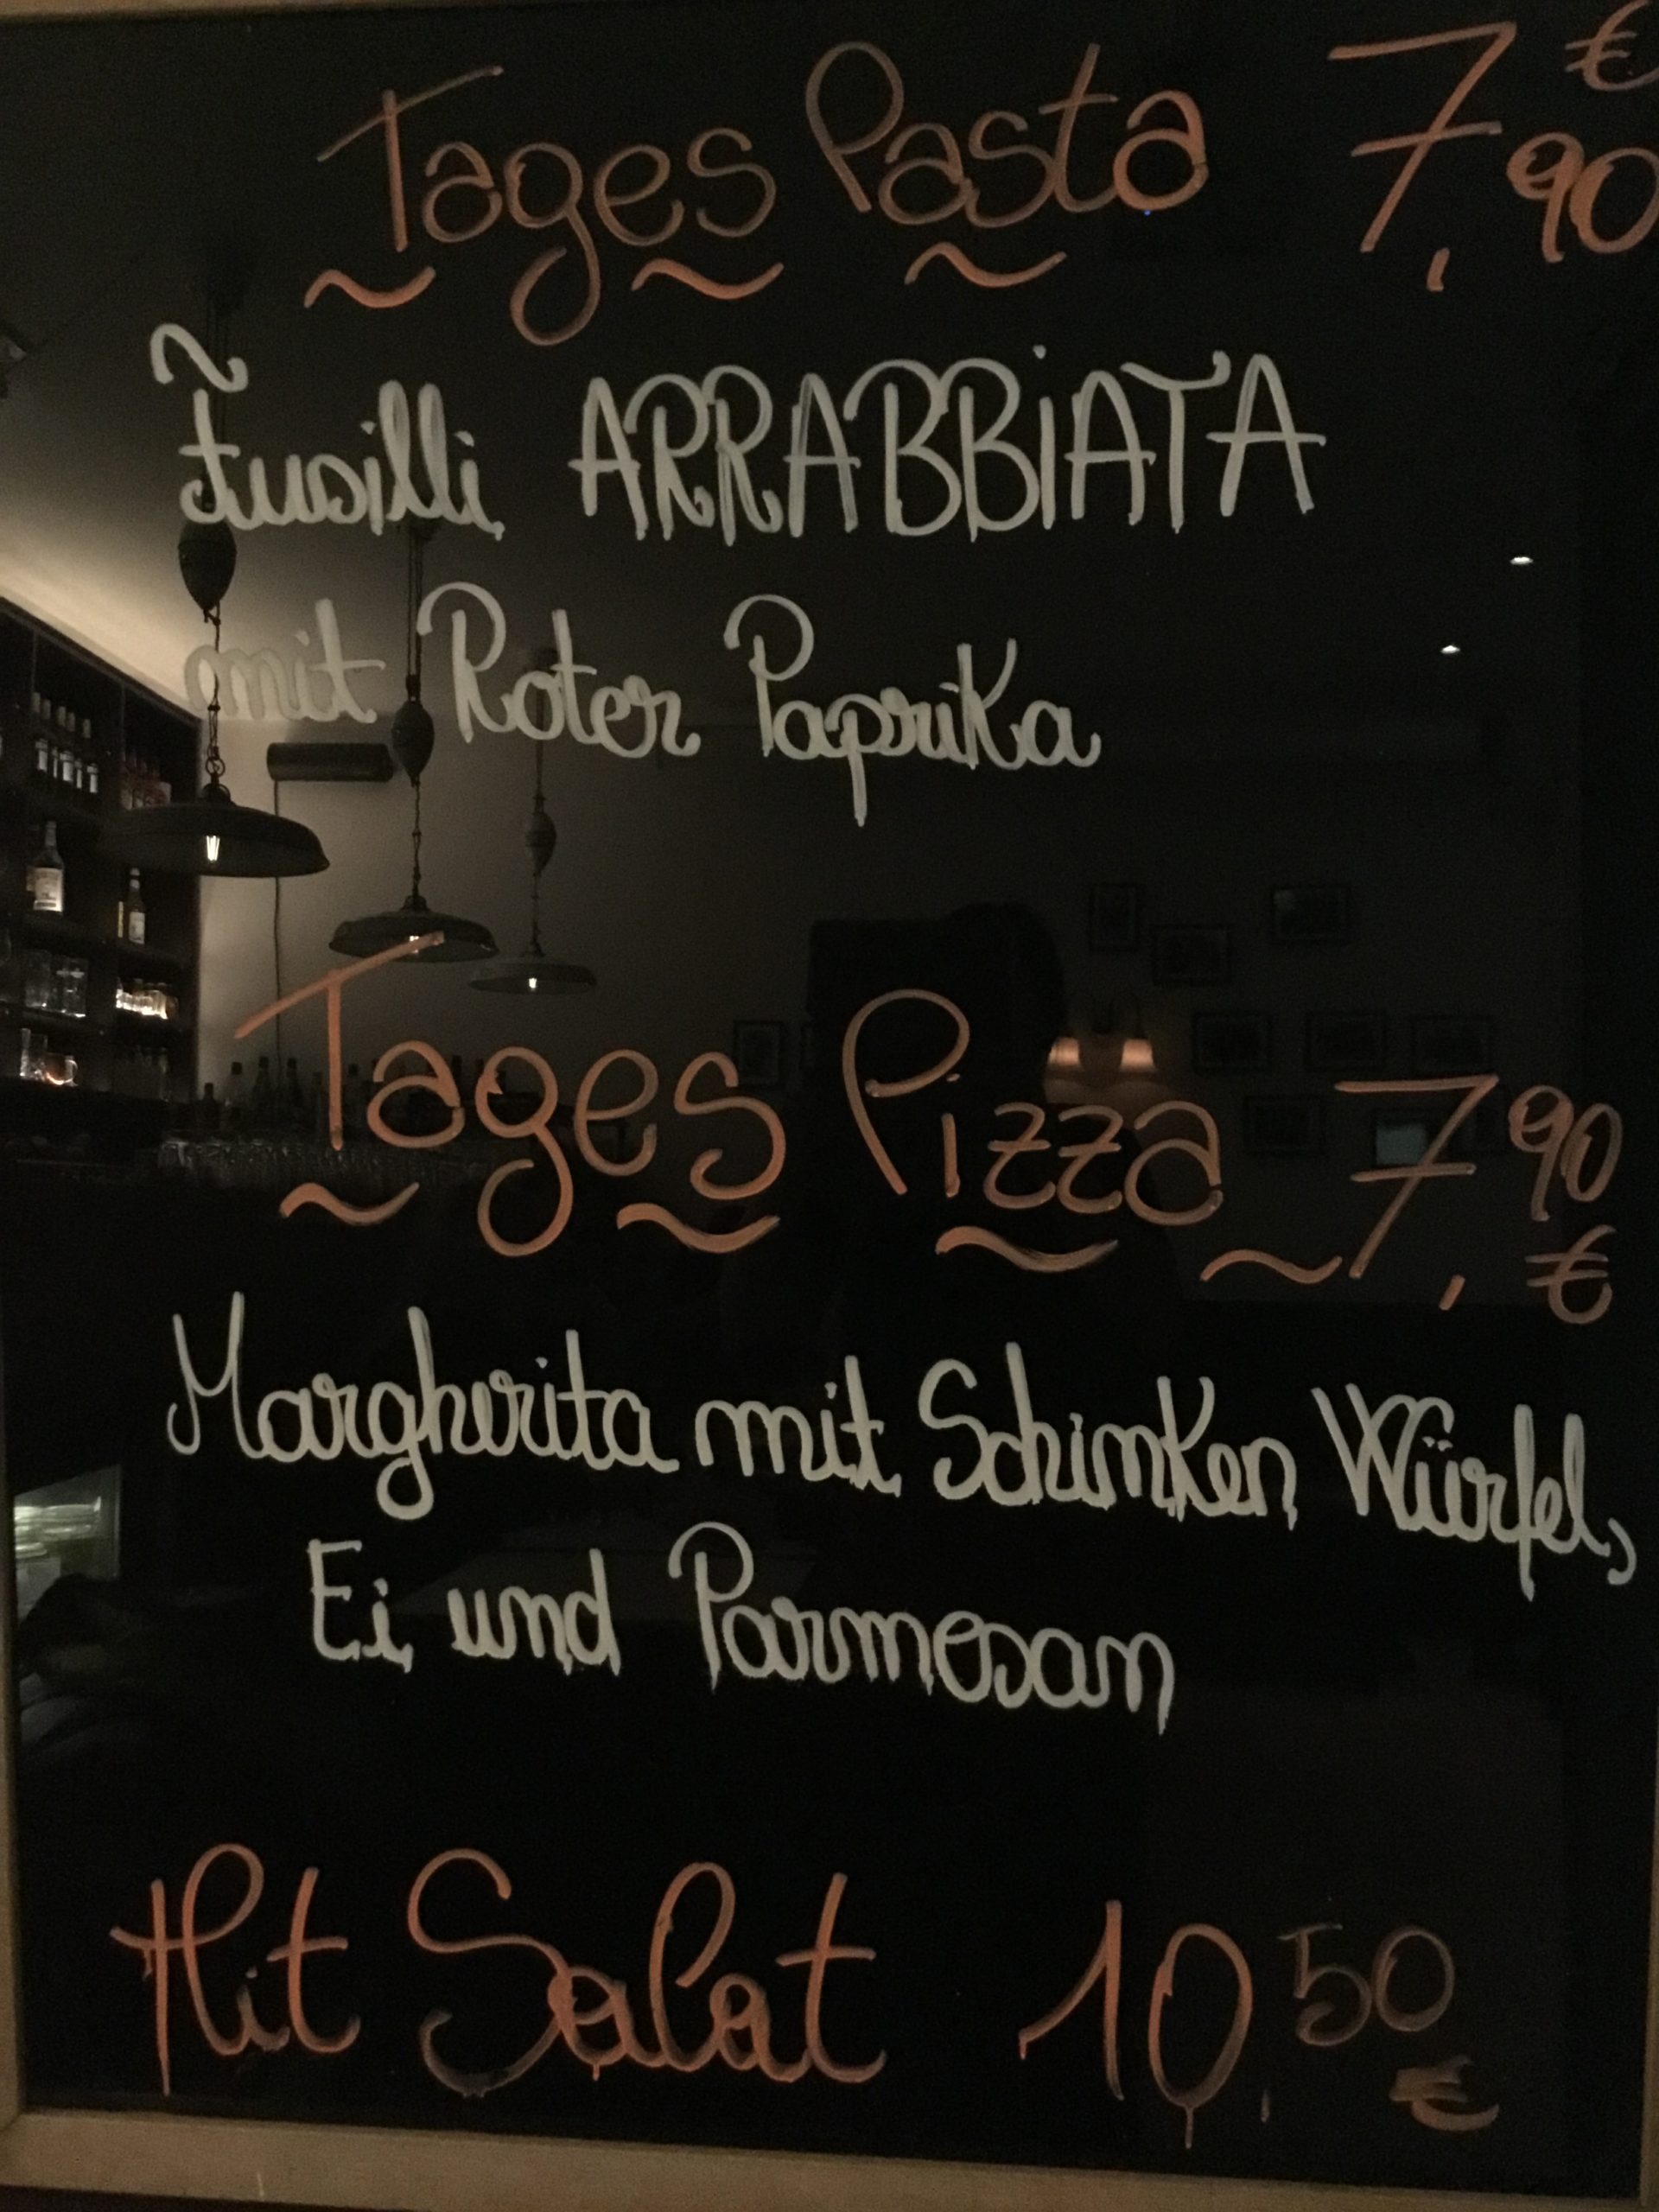 Tages Pasta 7,90 €
Fusilli ARRABBiATA
mit Roter Paprika
Tages Pizza 7,90 €
Margherita mit Schinken Würfel,
Ei und Parmesan
Hit Salat 10,50 €